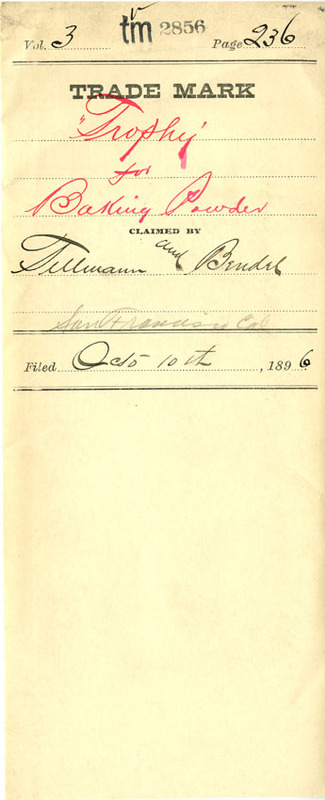 Vol. 3 tm 2856 Page 236
TRADE MARK
"Trophy"
for
Baking Powder
CLAIMED BY
Tillmann and Bendel
San Francisco Cal
Filed Octo 10th, 1896